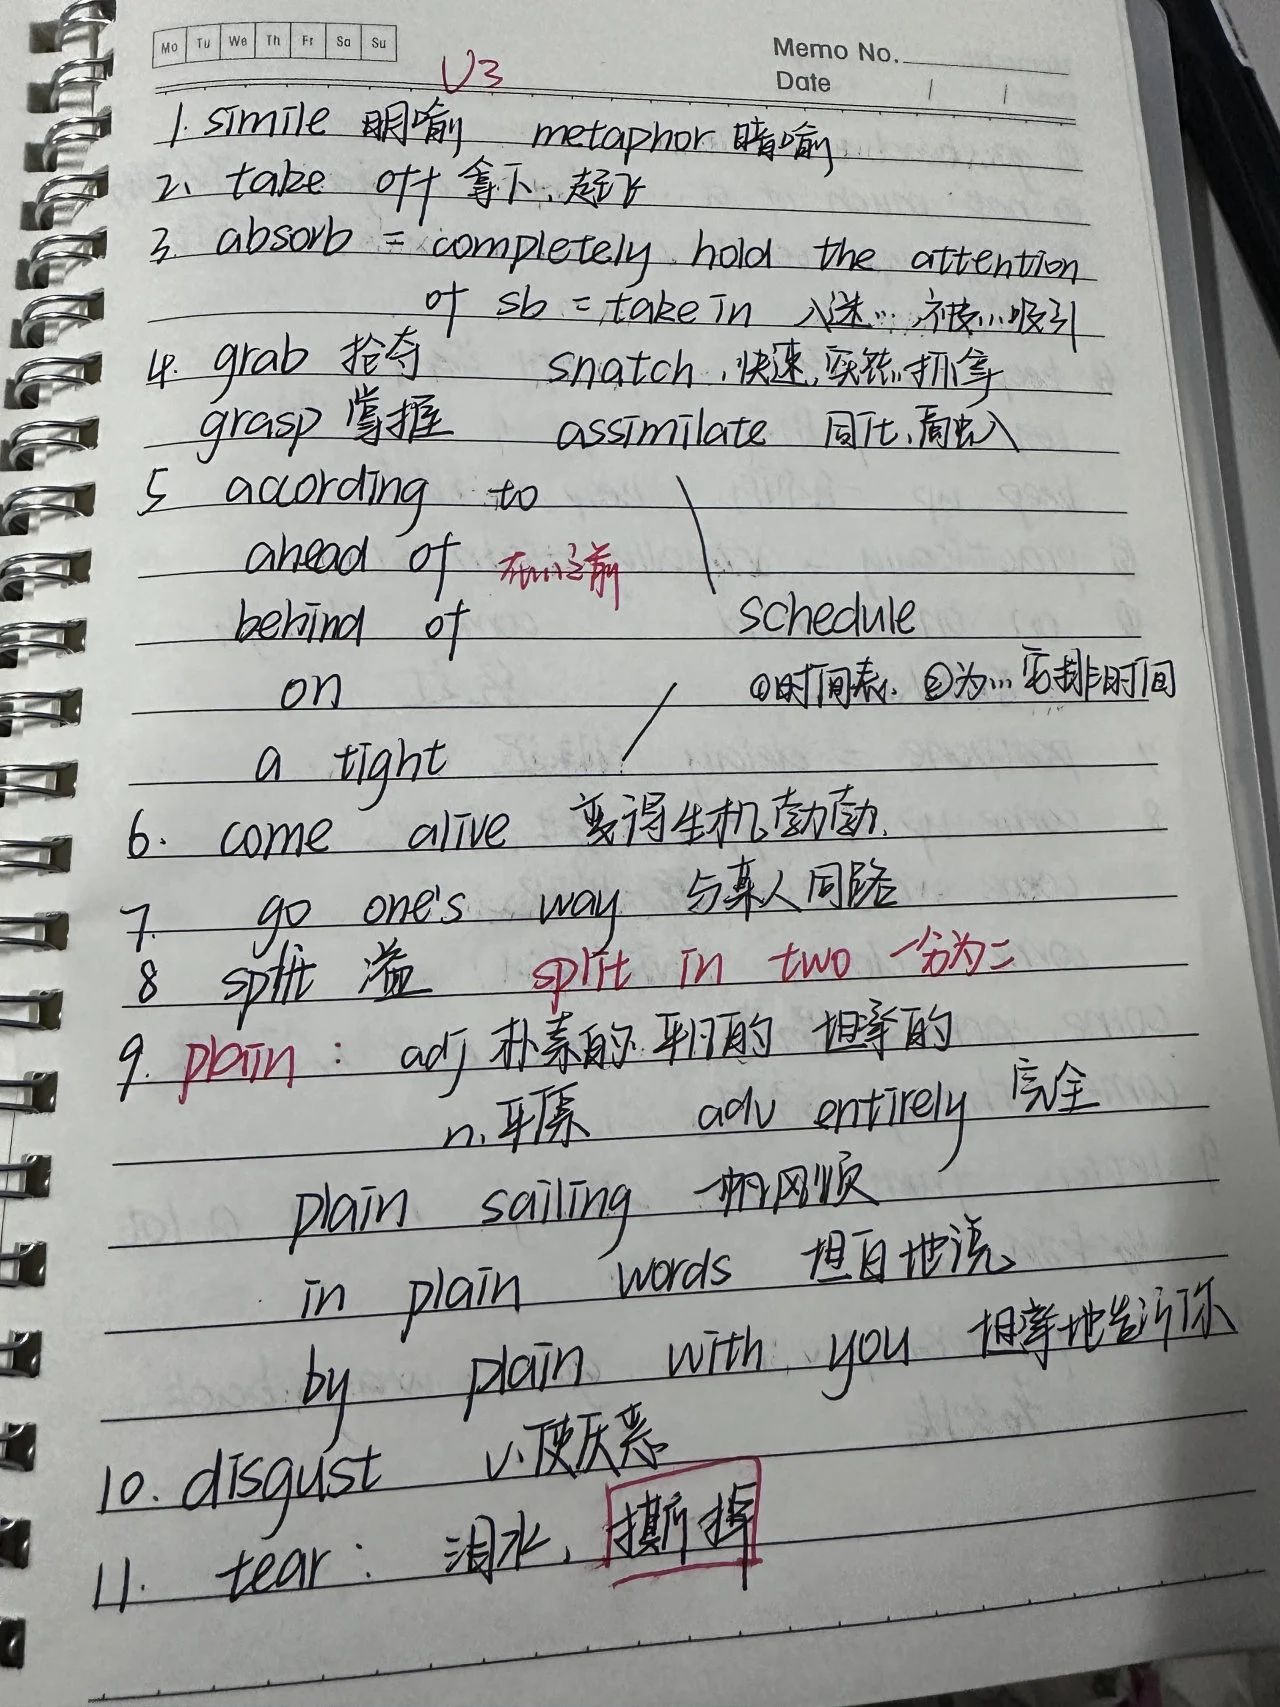 Mo Tu We Th Fr Sa Su
Memo No.
Date / /
U3
1. simile 明喻 metaphor 暗喻
2、take off 拿下、起飞
3 absorb = completely hold the attention
of sb = take in 入迷… 被…吸引
4. grab 抢夺 snatch 、快速、突然抓拿
grasp 掌握 assimilate 同化、融入
5 according to
ahead of 在…之前
behind of schedule
on ①时间表、②为…安排时间
a tight
6. come alive 变得生机勃勃.
7. go one's way 与某人同路
8 split 溢 split in two 一分为二
9. plain : adj 朴素的 平凡的 坦率的
n.平原 adv entirely 完全
plain sailing 一帆风顺
in plain words 坦白地说
by plain with you 坦率地告诉你
10. disgust v.使厌恶
11. tear : 泪水, 撕掉